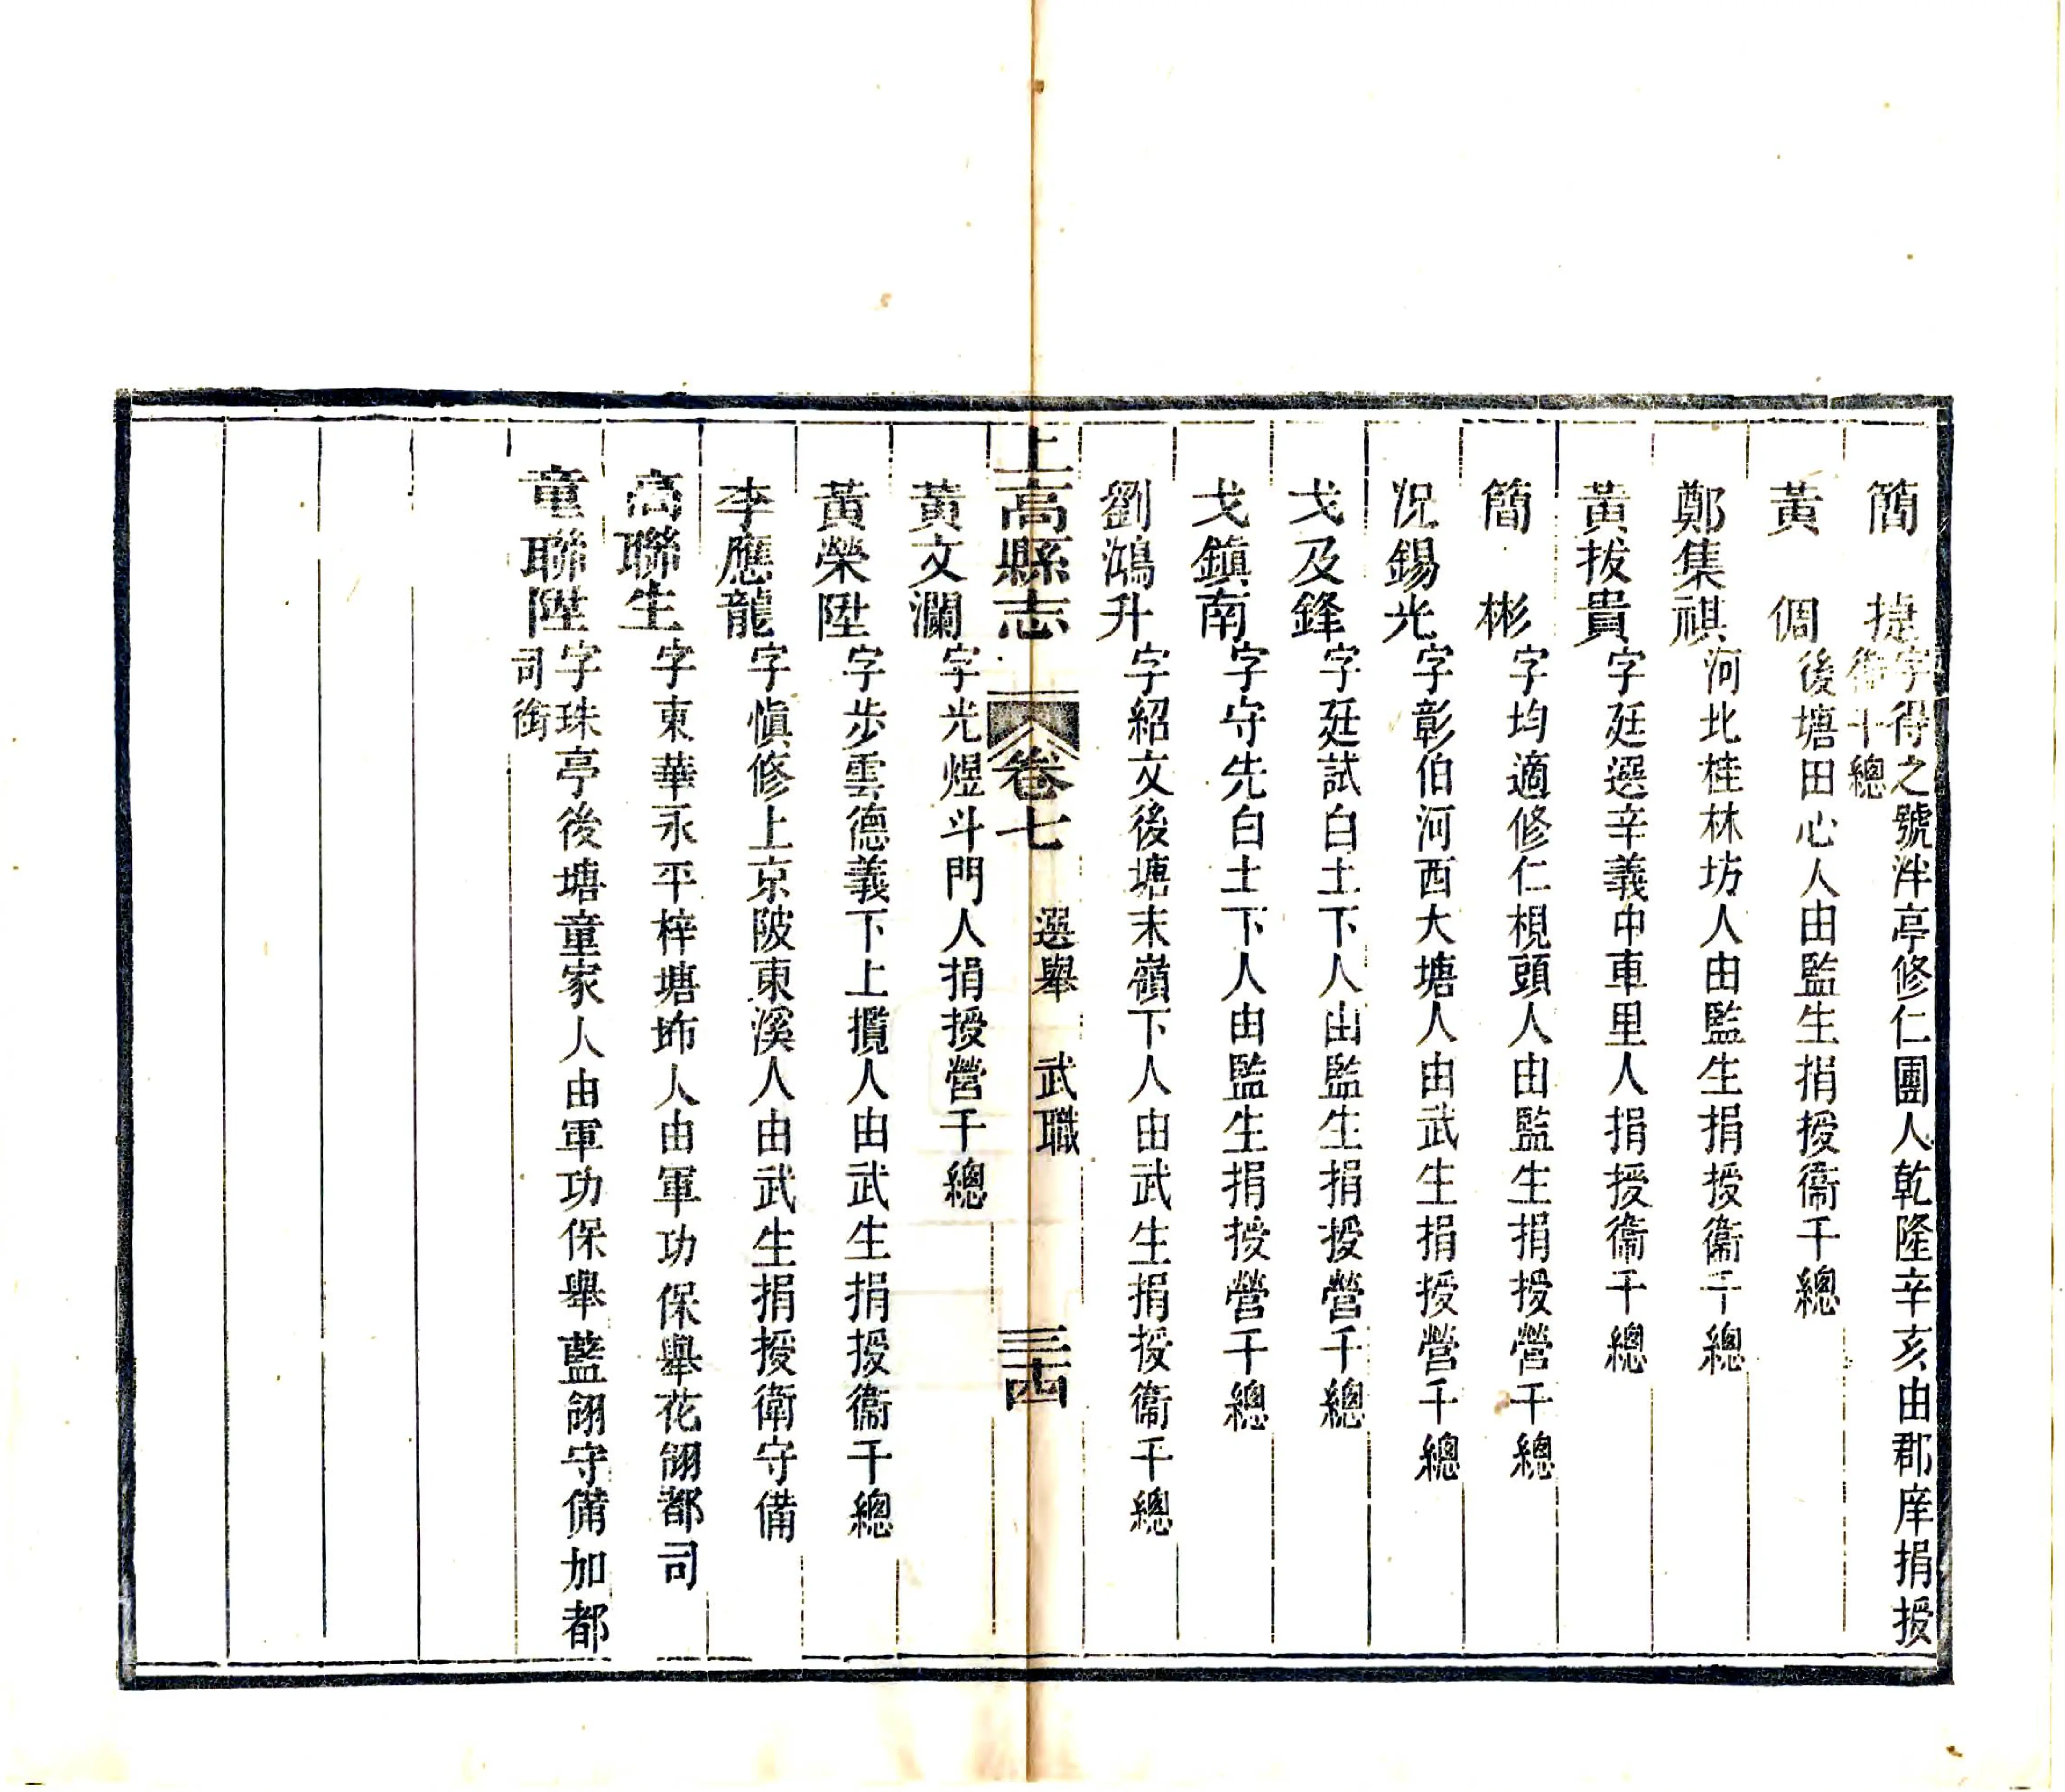 簡　捷字得之號泮亭修仁團人乾隆辛亥由郡庠捐授
衛千總
黃　倜後塘田心人由監生捐授衞千總
鄭集祺河北桂林坊人由監生捐授衞千總
黃拔貴字廷選辛義申車里人捐授衞千總
簡　彬字均適修仁梘頭人由監生捐授營千總
況錫光字彰伯河西大塘人由武生捐授營千總
戈及鋒字廷試白土下人由監生捐授營千總
戈鎮南字守先白土下人由監生捐授營千總
劉鴻升字紹文後塘末嶺下人由武生捐授衞千總
上高縣志　卷七　選舉　武職　三十四
黃文瀾字光煜斗門人捐授營千總
黃榮陞字步雲德義下上攬人由武生捐授衞千總
李應龍字慎修上京陂東溪人由武生捐授衛守備
高聯生字東華永平梓塘㘵人由軍功保舉花翎都司
童聯陞字珠亭後塘童家人由軍功保舉藍翎守備加都
司銜